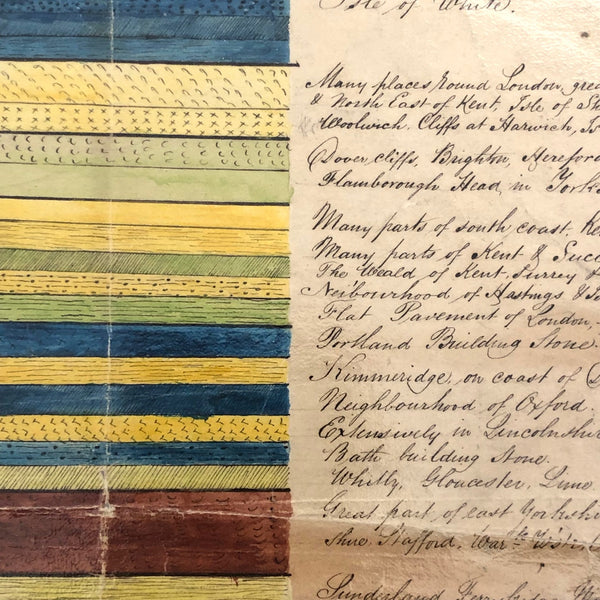 Isle of White.
Many places round London, grea
& North East of Kent, Isle of She
Woolwich. Cliffs at Harwich, Is
Dover cliffs, Brighton, Hereford
Flamborough Head, in Yorks
Many parts of south coast, Ke
Many parts of Kent & Succ
The Weald of Kent, Surrey &
Neibourhood of Hastings & I
Flat Pavement of London
Portland Building Stone.
Kimmeridge, on coast of D
Neighbourhood of Oxford.
Extensively in Lincolnshir
Bath building Stone.
Whitby, Gloucester, Lime
Great part of east Yorkshi
shire. Stafford,
Sunderland